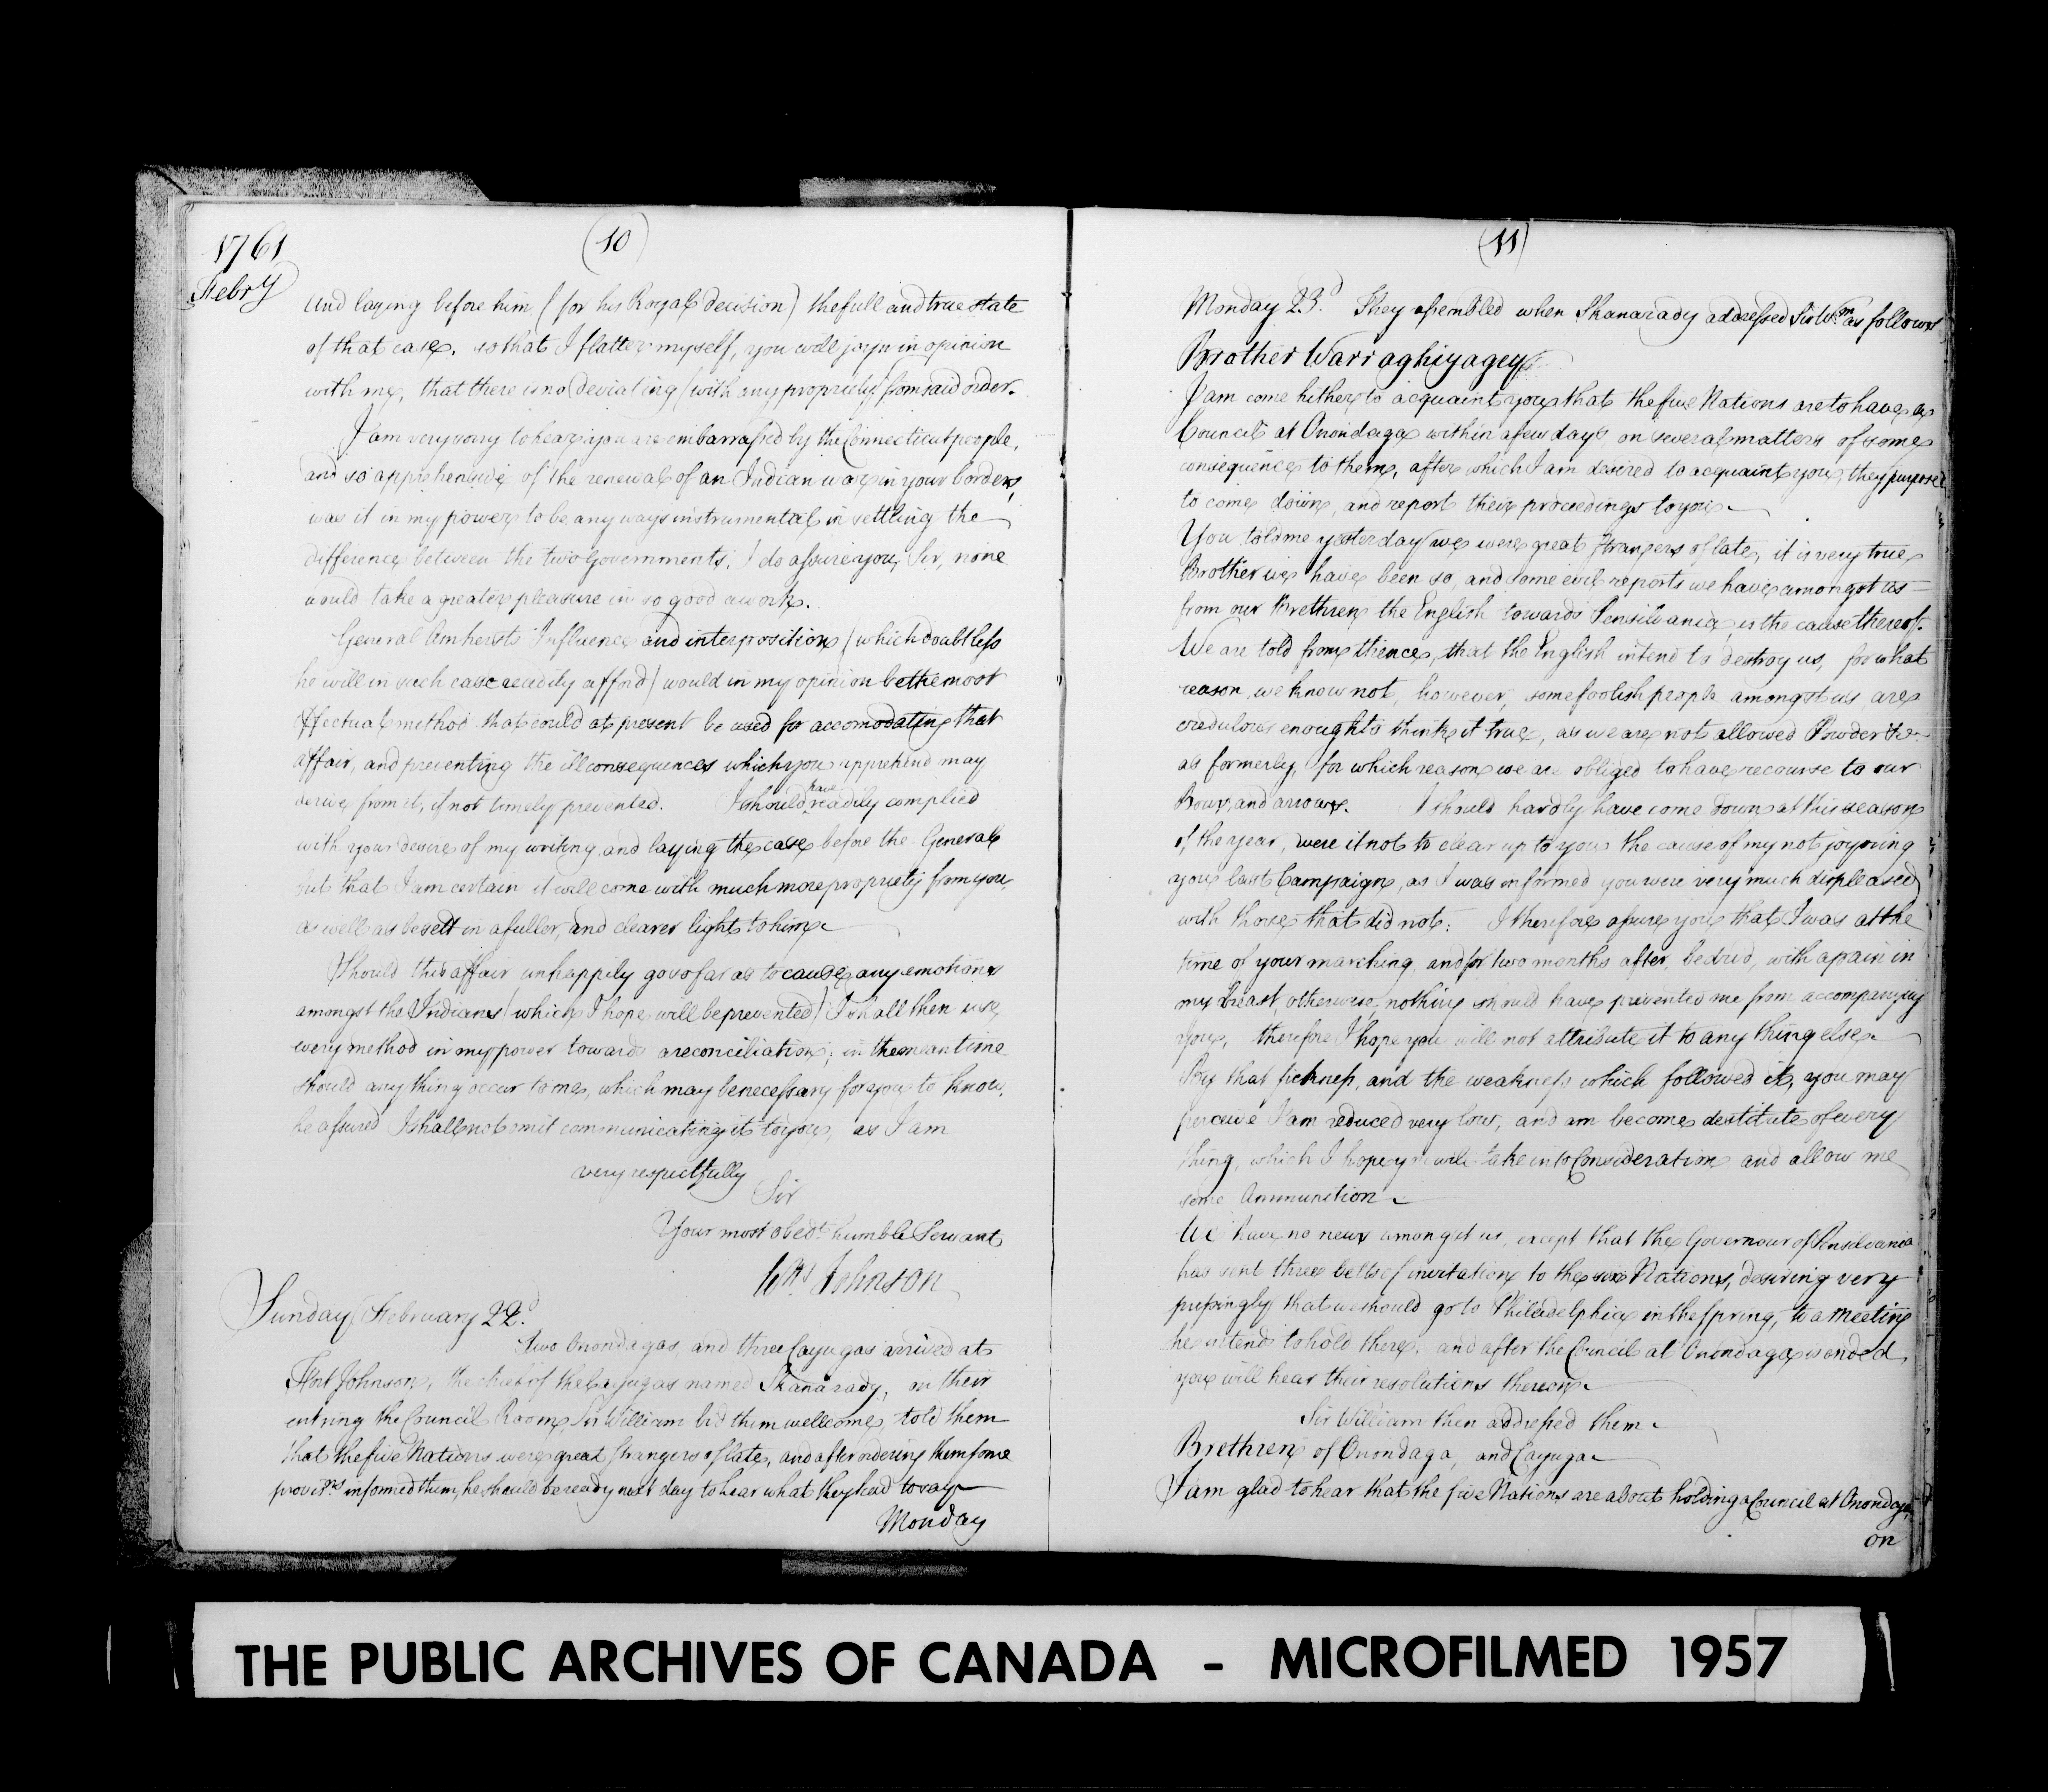 1761
Febry
(10)
and laying before him (for his Royal decision) the full and true state
of that case. so that I flatter myself, you will joyn in opinion
with me, that there is no deviating (with any propriety) from said order.
I am very sorry to hear you are embarrassed by the Connecticut people,
and so apprehensive of the renewal of an Indian war in your borders,
was it in my power to be any ways instrumental in settling the
difference between the two Governments. I do assure you, Sir, none
would take a greater pleasure in so good a work.
General Amherst's Influence and interposition (which doubtless
he will in such case readily afford) would in my opinion be the most
effectual method that could at present be used for accomodating that
affair, and preventing the ill consequences which you apprehend may
derive from it, if not timely prevented. I should have readily complied
with your desire of my writing and laying the case before the General
but that I am certain it will come with much more propriety from you,
as well as be sett in a fuller, and clearer light to him.
Should this affair unhappily go so far as to cause any emotions
amongst the Indians (which I hope will be prevented) I shall then use
every method in my power towards a reconciliation; in the mean time
should any thing occur to me, which may be necessary for you to know,
be assured I shall not omit communicating it to you, as I am
very respectfully
Sir
Your most obedt humble Servant
Wm Johnson
Sunday February 22d.
Two Onondagas, and three Cayugas arrived at
Fort Johnson, the chief of the Cayugas named Skanarady, on their
entring the Council Room, Sir William bid them wellcome, told them
that the five Nations were great strangers of late, and after ordering them some
provisns informed them, he should be ready next day to hear what they had to say
Monday
(11)
Monday 23d. They assembled when Skanarady addressed Sir Wm as follows
Brother Warraghiyagey,
I am come hither to acquaint you that the five Nations are to have a
Council at Onondaga within a few days on several matters of some
consequence to them, after which I am desired to acquaint you, they purpose
to come down, and report their proceedings to you.
You told me yesterday we were great strangers of late, it is very true
Brother we have been so, and some evil reports we have amongst us
from our Brethren the English towards Pensilvania, is the cause thereof.
We are told from thence, that the English intend to destroy us, for what
reason we know not, however, some foolish people amongst us are
credulous enough to think it true, as we are not allowed Powder &c.
as formerly, for which reason we are obliged to have recourse to our
Bows, and arrows. I should hardly have come down at this season
of the year, were it not to clear up to you the cause of my not joyning
you last Campaign, as I was informed you were very much displeased
with those that did not: I therefore assure you that I was at the
time of your marching, and for two months after, bedrid, with a pain in
my breast, otherwise, nothing should have prevented me from accompanying
you, therefore I hope you will not attribute it to any thing else.
By that sickness, and the weakness which followed it, you may
perceive I am reduced very low, and am become destitute of every
thing, which I hope you will take into Consideration and allow me
some Ammunition.
We have no news amongst us, except that the Governour of Pensilvania
has sent three belts of invitation to the six Nations, desiring very
pressingly that we should go to Philadelphia in the spring, to a meeting
he intends to hold there. and after the Council at Onondaga is ended,
you will hear their resolutions thereon.
Sir William then addressed them
Brethren of Onondaga, and Cayuga
I am glad to hear that the five Nations are about holding a Council at Onondaga,
on
THE PUBLIC ARCHIVES OF CANADA - MICROFILMED 1957